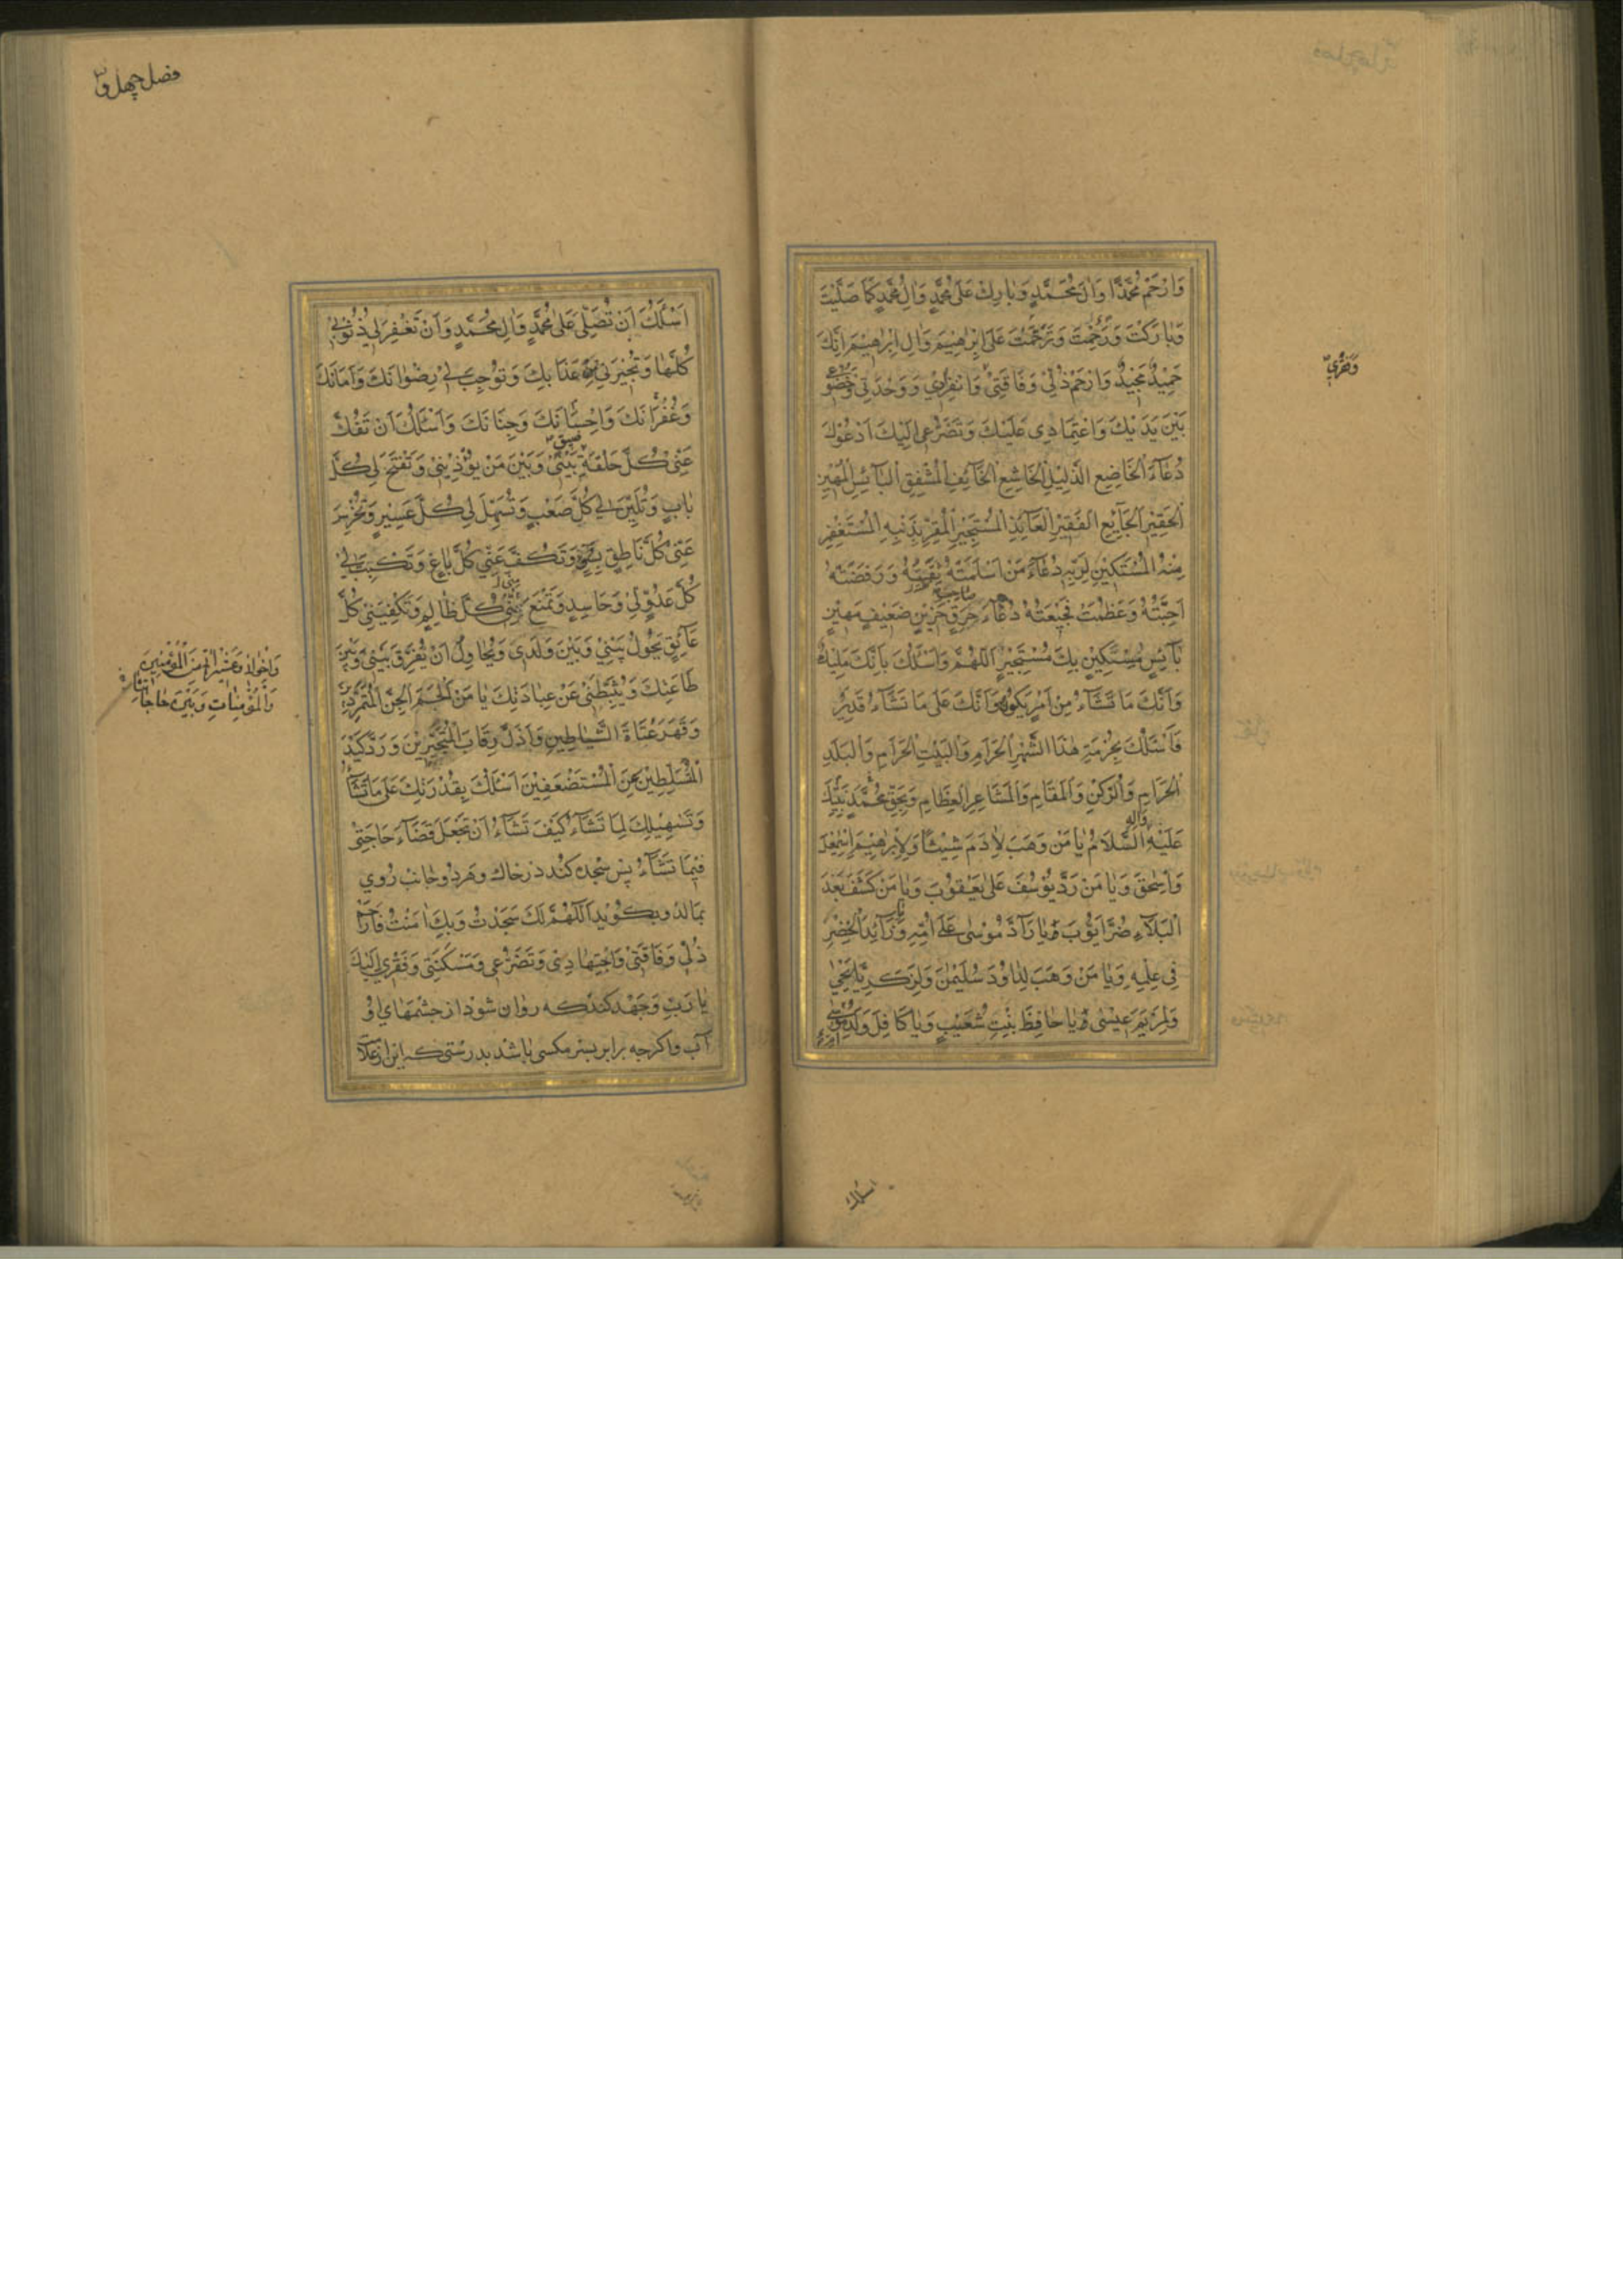 وَارْحَمْ مُحَمَّدًا وَاٰلَ مُحَمَّدٍ وَبَارِكْ عَلٰى مُحَمَّدٍ وَاٰلِ مُحَمَّدٍ كَمَا صَلَّيْتَ
وَبَارَكْتَ وَرَحِمْتَ وَتَرَحَّمْتَ عَلٰى اِبْرٰهِيْمَ وَاٰلِ اِبْرٰهِيْمَ اِنَّكَ
حَمِيْدٌ مَجِيْدٌ وَارْحَمْ ذُلِّيْ وَفَاقَتِيْ وَانْفِرَادِيْ وَوَحْدَتِيْ وَخُضُوْعِيْ
وَفَقْرِيْ
بَيْنَ يَدَيْكَ وَاعْتِمَادِيْ عَلَيْكَ وَتَضَرُّعِيْ اِلَيْكَ اَدْعُوْكَ
دُعَآءَ الْخَاضِعِ الذَّلِيْلِ الْخَاشِعِ الْخَآئِفِ الْمُشْفِقِ الْبَآئِسِ الْمَهِيْنِ
الْحَقِيْرِ الْجَآئِعِ الْفَقِيْرِ الْعَآئِذِ الْمُسْتَجِيْرِ الْمُقِرِّ بِذَنْبِهِ الْمُسْتَغْفِرِ
مِنْهُ الْمُسْتَكِيْنِ لِرَبِّهِ دُعَآءَ مَنْ اَسْلَمَتْهُ وَرَفَضَتْهُ
اَحِبَّتُهُ وَعَظُمَتْ فَجِيْعَتُهُ دُعَآءَ حَرِقٍ حَزِيْنٍ ضَعِيْفٍ مَهِيْنٍ
بَآئِسٍ مُسْتَكِيْنٍ بِكَ مُسْتَجِيْرٍ اَللّٰهُمَّ وَاَسْئَلُكَ بِاَنَّكَ مَلِيْكٌ
وَاَنَّكَ مَا تَشَآءُ مِنْ اَمْرٍ يَكُوْنُ وَاَنَّكَ عَلٰى مَا تَشَآءُ قَدِيْرٌ
فَاَسْئَلُكَ بِحُرْمَةِ هٰذَا الشَّهْرِ الْحَرَامِ وَالْبَيْتِ الْحَرَامِ وَالْبَلَدِ
الْحَرَامِ وَالرُّكْنِ وَالْمَقَامِ وَالْمَشَاعِرِ الْعِظَامِ وَبِحَقِّ مُحَمَّدٍ نَبِيِّكَ
عَلَيْهِ وَاٰلِهِ السَّلَامُ يَا مَنْ وَهَبَ لِاٰدَمَ شِيْثًا وَلِاِبْرٰهِيْمَ اِسْمٰعِيْلَ
وَاِسْحٰقَ وَيَا مَنْ رَدَّ يُوْسُفَ عَلٰى يَعْقُوْبَ وَيَا مَنْ كَشَفَ بَعْدَ
الْبَلَآءِ ضُرَّ اَيُّوْبَ وَيَا رَآدَّ مُوْسٰى عَلٰى اُمِّهِ وَيَا زَآئِدَ الْخِضْرِ
فِيْ عِلْمِهِ وَيَا مَنْ وَهَبَ لِدَاوُدَ سُلَيْمٰنَ وَلِزَكَرِيَّا يَحْيٰى
وَلِمَرْيَمَ عِيْسٰى وَيَا حَافِظَ بِنْتِ شُعَيْبٍ وَيَا كَافِلَ وَلَدِ اُمِّ مُوْسٰى
اسئلك
فصل چهل و
اَسْئَلُكَ اَنْ تُصَلِّيَ عَلٰى مُحَمَّدٍ وَاٰلِ مُحَمَّدٍ وَاَنْ تَغْفِرَ لِيْ ذُنُوْبِيْ
كُلَّهَا وَتُجِيْرَنِيْ مِنْ عَذَابِكَ وَتُوْجِبَ لِيْ رِضْوَانَكَ وَاَمَانَكَ
وَغُفْرَانَكَ وَاِحْسَانَكَ وَجِنَانَكَ وَاَسْئَلُكَ اَنْ تَفُكَّ
عَنِّيْ كُلَّ حَلْقَةِ ضِيْقٍ بَيْنِيْ وَبَيْنَ مَنْ يُؤْذِيْنِيْ وَتَفْتَحَ لِيْ كُلَّ
بَابٍ وَتُلَيِّنَ لِيْ كُلَّ صَعْبٍ وَتُسَهِّلَ لِيْ كُلَّ عَسِيْرٍ وَتُخْرِسَ
عَنِّيْ كُلَّ نَاطِقٍ بِسُوْءٍ وَتَكُفَّ عَنِّيْ كُلَّ بَاغٍ وَتَكْبِتَ لِيْ
كُلَّ عَدُوٍّ لِيْ وَحَاسِدٍ وَتَمْنَعَ مِنِّيْ كُلَّ ظَالِمٍ وَتَكْفِيَنِيْ كُلَّ
عَآئِقٍ يَحُوْلُ بَيْنِيْ وَبَيْنَ وَلَدِيْ وَيُحَاوِلُ اَنْ يُفَرِّقَ بَيْنِيْ وَبَيْنَ
طَاعَتِكَ وَيُثَبِّطَنِيْ عَنْ عِبَادَتِكَ يَا مَنْ اَلْجَمَ الْجِنَّ الْمُتَمَرِّدِيْنَ
وَقَهَرَ عُتَاةَ الشَّيَاطِيْنِ وَاَذَلَّ رِقَابَ الْمُتَجَبِّرِيْنَ وَرَدَّ كَيْدَ
الْمُتَسَلِّطِيْنَ عَنِ الْمُسْتَضْعَفِيْنَ اَسْئَلُكَ بِقُدْرَتِكَ عَلٰى مَا تَشَآءُ
وَتَسْهِيْلِكَ لِمَا تَشَآءُ كَيْفَ تَشَآءُ اَنْ تَجْعَلَ قَضَآءَ حَاجَتِيْ
فِيْمَا تَشَآءُ پس سجده كند در خاك و هر دو جانب روي
بمالد و بكويد اَللّٰهُمَّ لَكَ سَجَدْتُ وَبِكَ اٰمَنْتُ فَارْحَمْ
ذُلِّيْ وَفَاقَتِيْ وَاجْتِهَادِيْ وَتَضَرُّعِيْ وَمَسْكَنَتِيْ وَفَقْرِيْ اِلَيْكَ
يَا رَبِّ و جهد كند كه روان شود از چشمهاي او
آب و اكر چه برابر سر مكسي باشد بدرستي كه اين از علامت